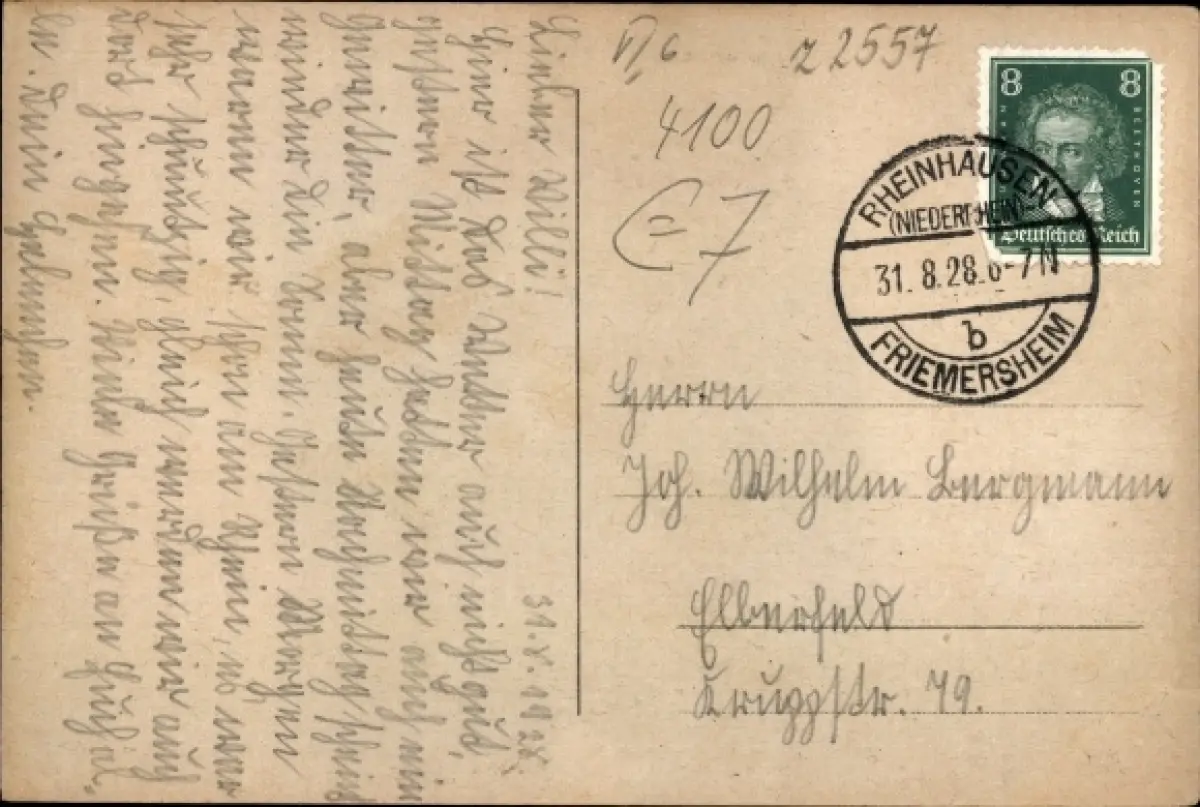 31. 8. 1928.
Lieber Willi!
Hier ist das Wetter auch nicht gut,
gestern Mittag hatten wir auch ein
Gewitter, aber heute Nachmittag scheint
wieder die Sonne. Gestern Morgen
waren wir schon am Rhein, es war
sehr schmutzig, gleich werden wir auch
dort hingehen. Viele Grüße an Euch al-
le. Dein Helmuchen.
VI, 6
z 2557
4100
€ 7
8 8
BEETHOVEN
Deutsches Reich
RHEINHAUSEN
(NIEDERRHEIN)
31. 8. 28. 6-7 N
b
FRIEMERSHEIM
Herrn
Joh. Wilhelm Bergmann
Elberfeld
Kruppstr. 79.